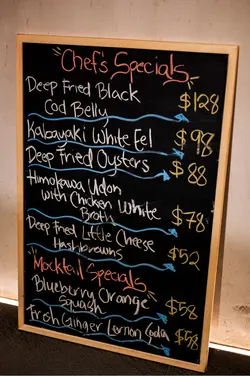 Chef's Specials
Deep Fried Black
Cod Belly
$128
Kabayaki White Eel
$98
Deep Fried Oysters
$88
Himokawa Udon
with Chicken White
Broth
$78
Deep Fried Little Cheese
Hashbrowns
$52
Mocktail Specials
Blueberry Orange
Squash
$58
Fresh Ginger Lemon Soda
$58